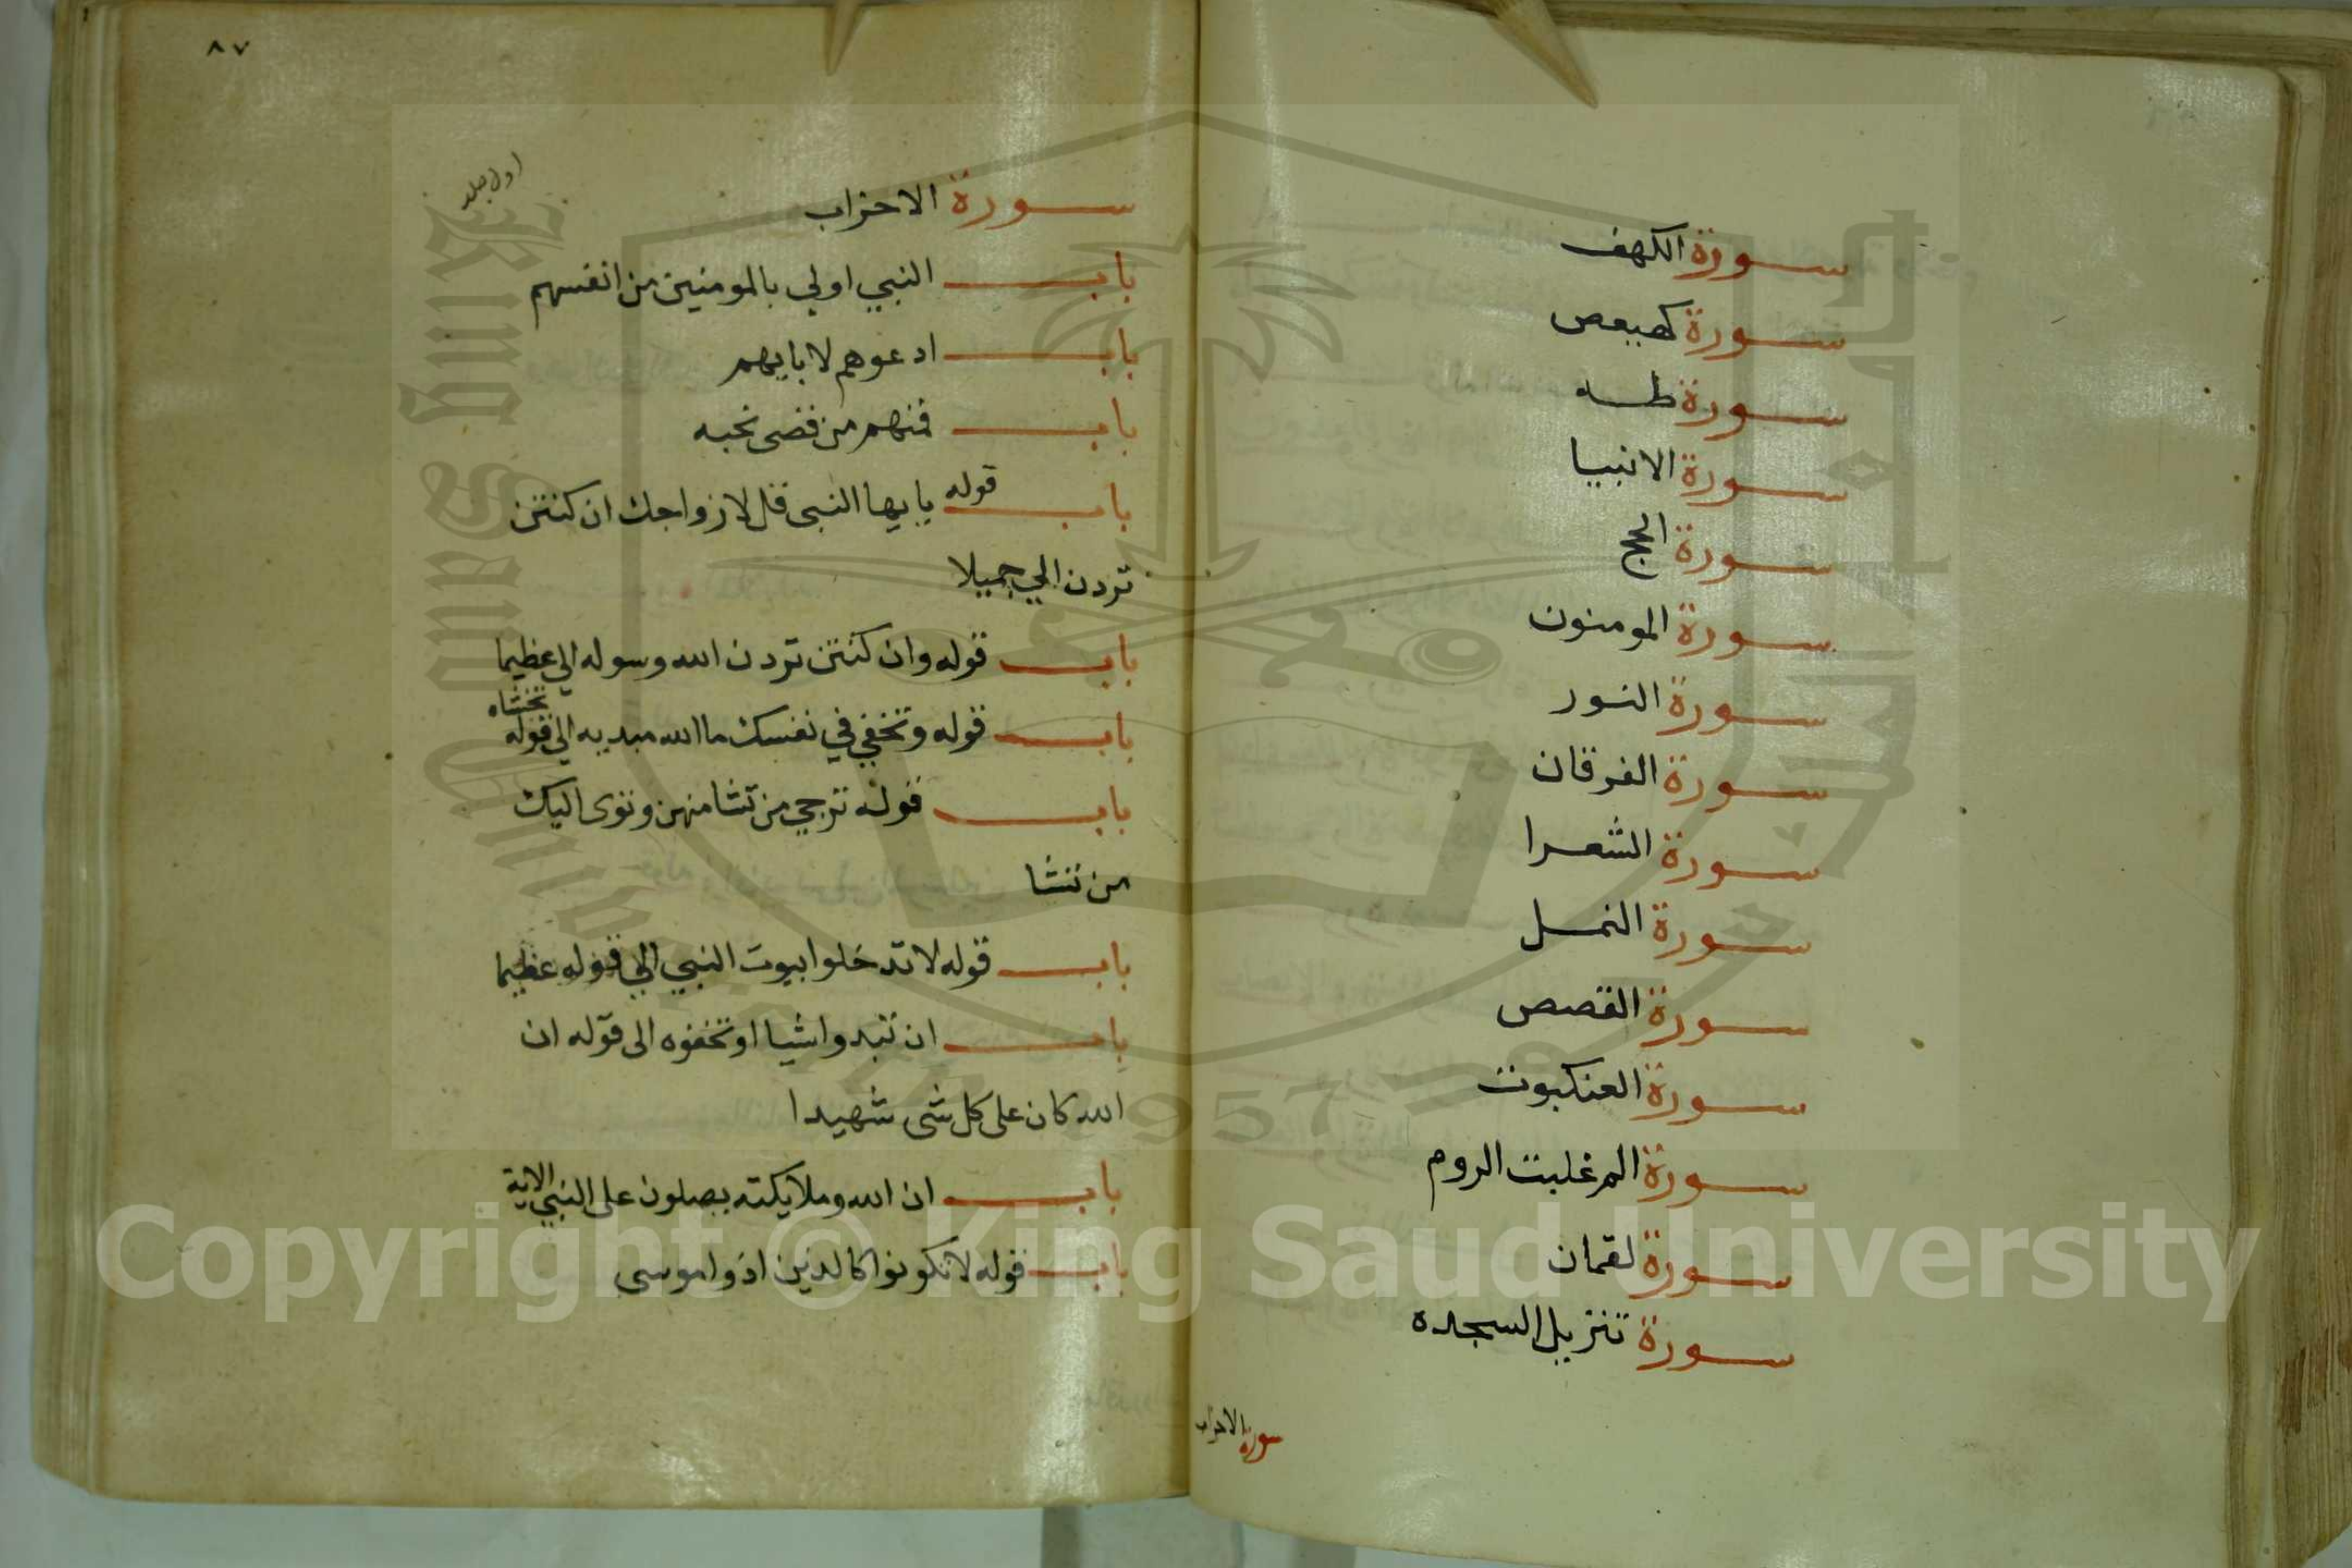 سورة الكهف
سورة كهيعص
سورة طه
سورة الانبيا
سورة الحج
سورة المومنون
سورة النور
سورة الفرقان
سورة الشعرا
سورة النمل
سورة القصص
سورة العنكبوت
سورة الم غلبت الروم
سورة لقمان
سورة تنزيل السجده
سورة الاحزاب
٨٧
اول جلد
سورة الاحزاب
باب النبي اولي بالمومنين من انفسهم
باب ادعوهم لابايهم
باب فمنهم من قضى نحبه
باب قوله يايها النبى قل لازواجك ان كنتن
تردن الي جميلا
باب قوله وان كنتن تردن الله وسوله الي عظيما
باب قوله وتخفي في نفسك ما الله مبديه الي قوله تخشاه
باب قوله ترجي من تشا منهن وتوى اليك
من تشا
باب قوله لا تدخلوا بيوت النبي الي قوله عظيما
باب ان تبدوا شيا او تخفوه الى قوله ان
الله كان على كل شى شهيدا
باب ان الله وملايكته يصلون على النبي الاية
باب قوله لا تكونوا كالذين اذوا موسى
Copyright © King Saud University
King Saud University
1957